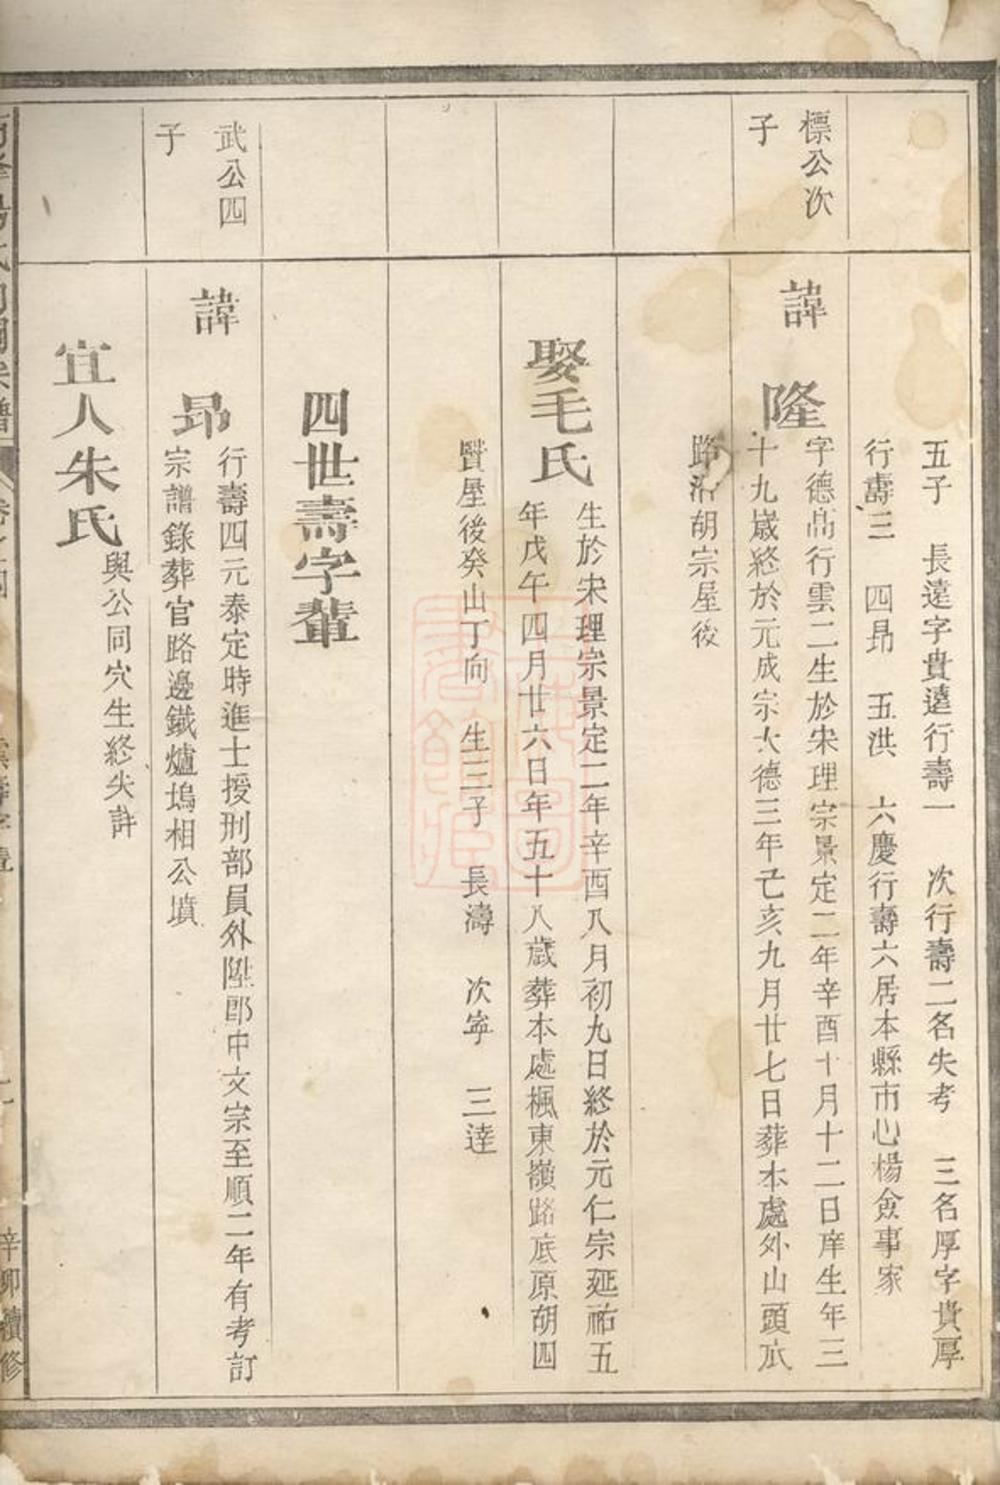 五子　長遠字貴遠行壽一　次行壽二名失考　三名厚字貴厚
行壽三　四昂　五洪　六慶行壽六居本縣市心楊僉事家
標公次
子
諱
隆
字德高行雲二生於宋理宗景定二年辛酉十月十二日庠生年三
十九歲終於元成宗大德三年己亥九月廿七日葬本處外山頭瓜
路沿胡宗屋後
娶毛氏
生於宋理宗景定二年辛酉八月初九日終於元仁宗延祐五
年戊午四月廿六日年五十八歲葬本處楓東嶺路底原胡四
賢屋後癸山丁向　生三子　長濤　次寧　三達
四世壽字輩
武公四
子
諱
昂
行壽四元泰定時進士授刑部員外陞郎中文宗至順二年有考訂
宗譜錄葬官路邊鐵爐塢相公墳
宜人朱氏
與公同穴生終失詳
辛卯續修